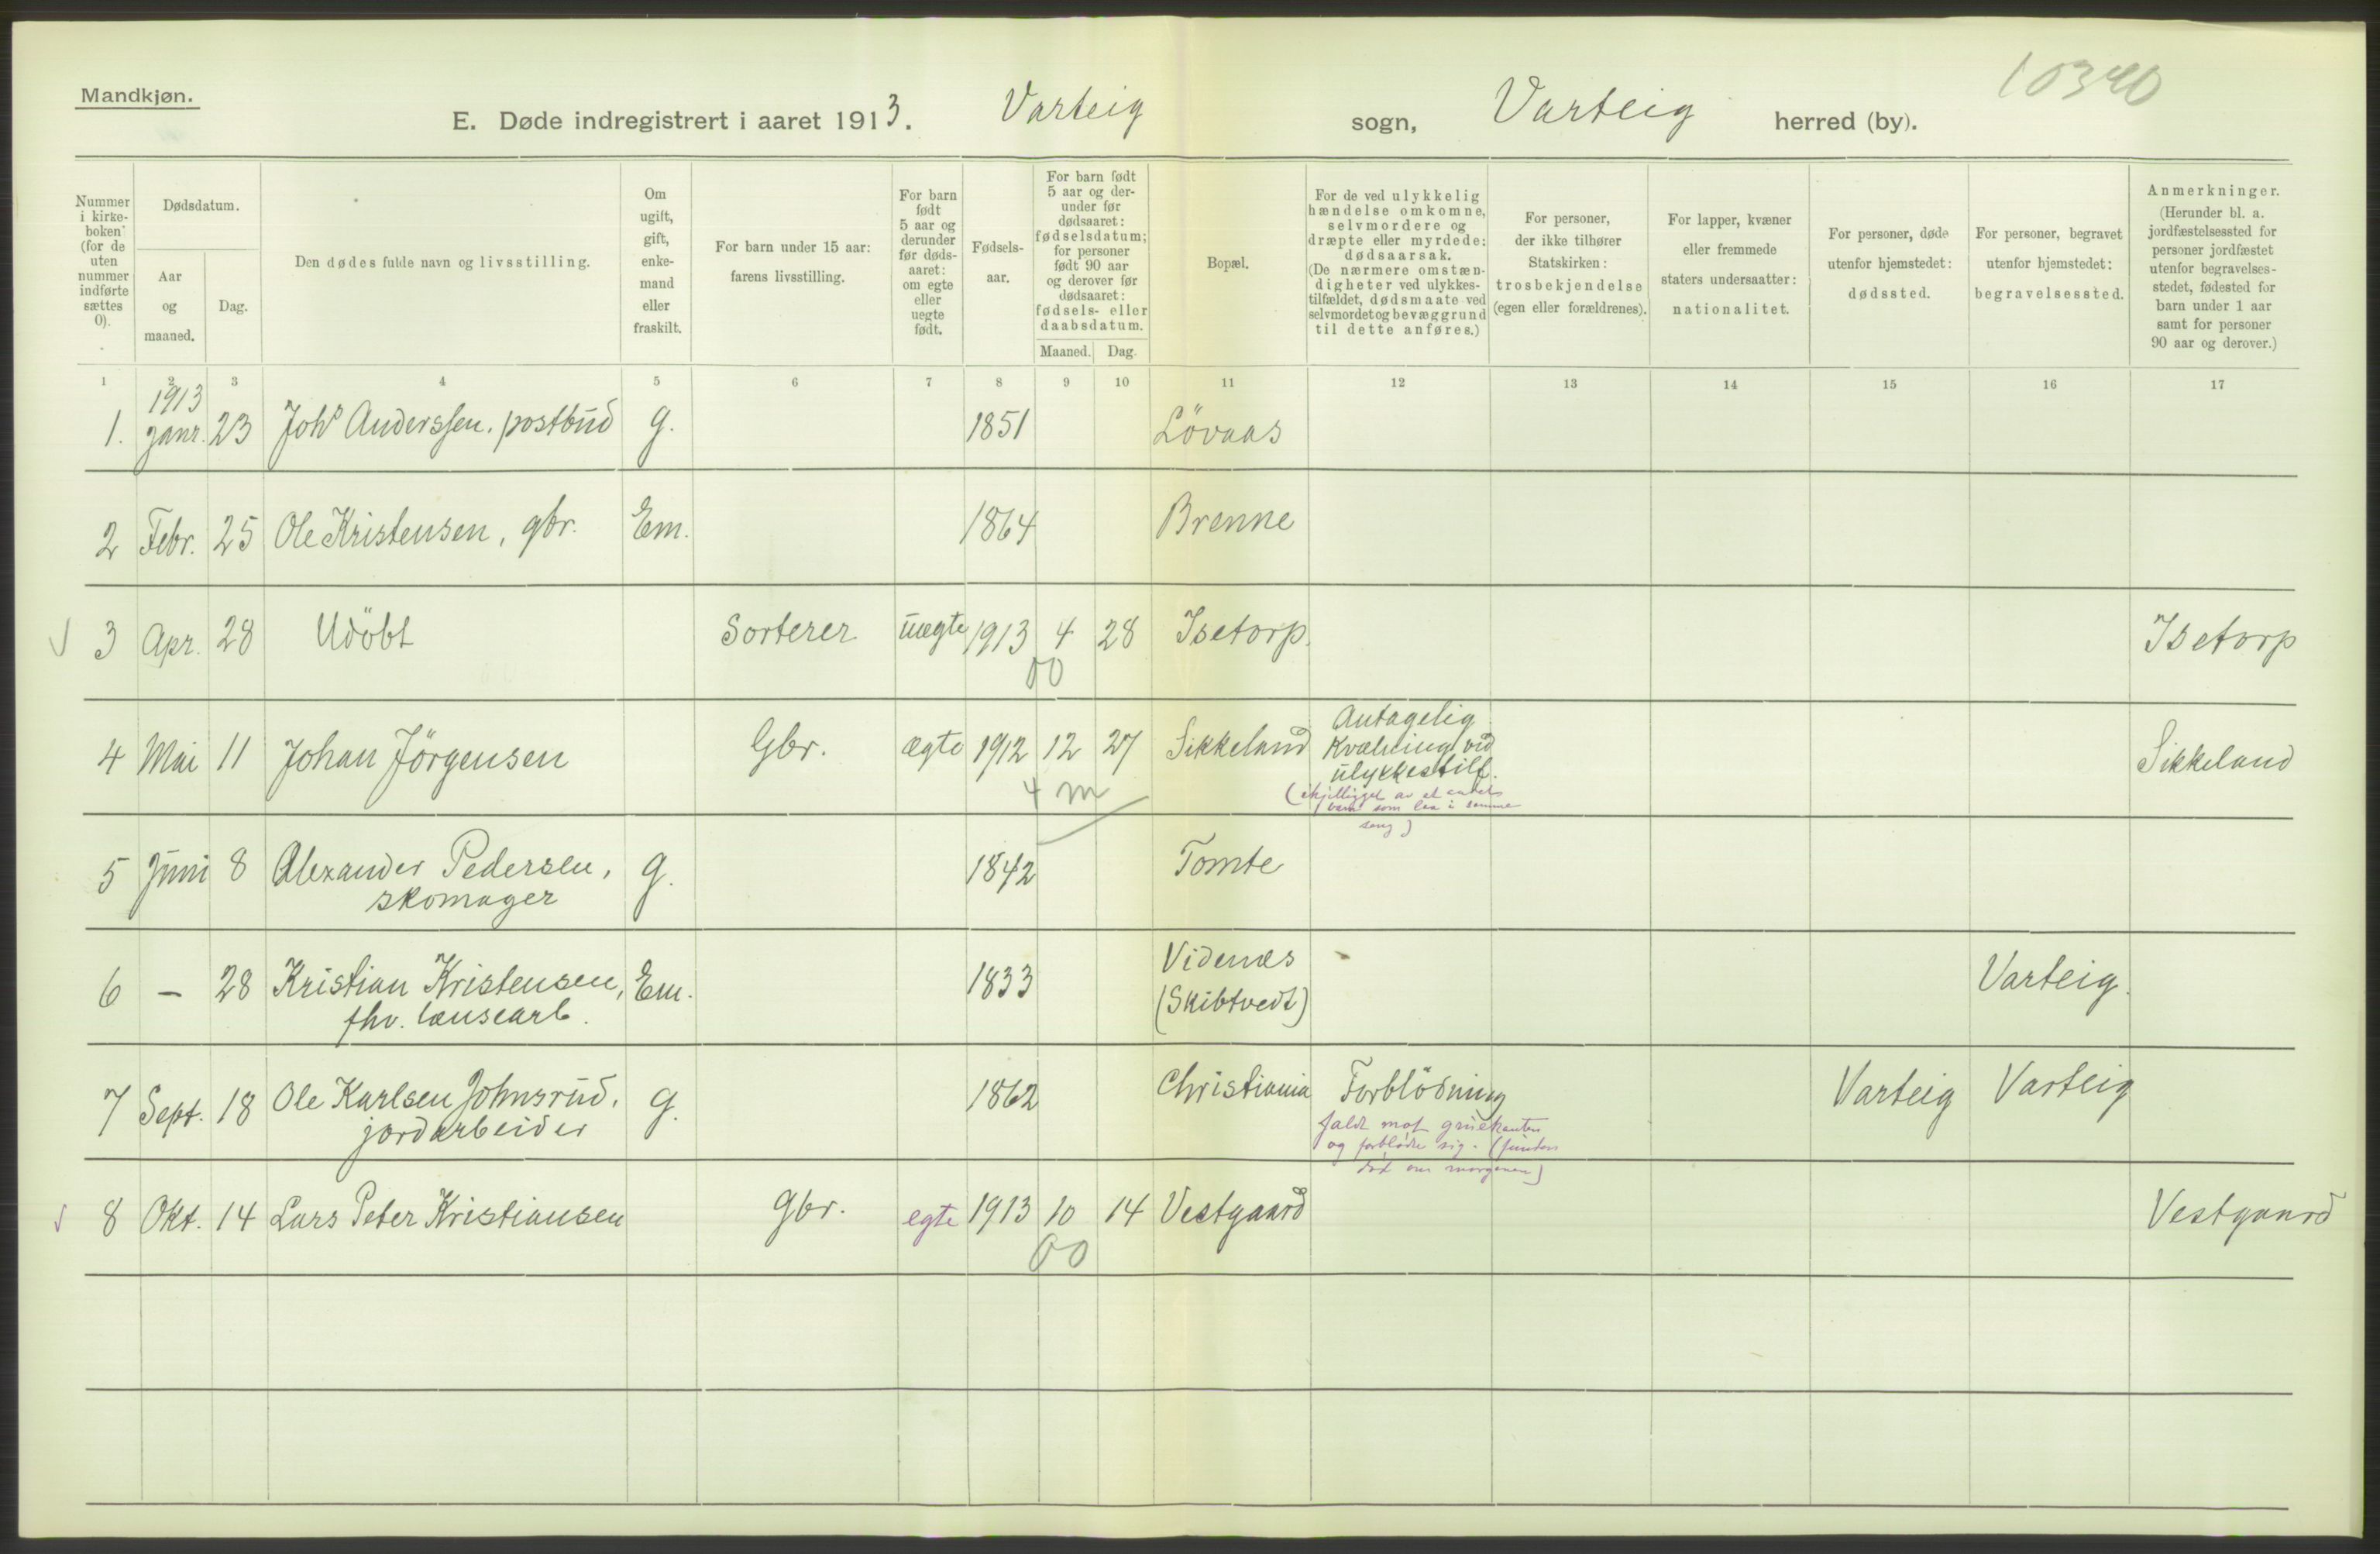 Mandkjøn.
10340
E. Døde indregistrert i aaret 1913. Varteig sogn, Varteig herred (by).
Nummer i kirke-boken (for de uten nummer indførte sættes 0).
Dødsdatum.
Aar og maaned.
Dag.
Den dødes fulde navn og livsstilling.
Om ugift, gift, enke-mand eller fraskilt.
For barn under 15 aar: farens livsstilling.
For barn født 5 aar og derunder før døds-aaret: om egte eller uegte født.
Fødsels-aar.
For barn født 5 aar og der-under før dødsaaret: fødselsdatum; for personer født 90 aar og derover før dødsaaret: fødsels- eller daabsdatum.
Maaned. Dag.
Bopæl.
For de ved ulykkelig hændelse omkomne, selvmordere og dræpte eller myrdede: dødsaarsak. (De nærmere omstæn-digheter ved ulykkes-tilfældet, dødsmaate ved selvmordet og bevæggrund til dette anføres.)
For personer, der ikke tilhører Statskirken: trosbekjendelse (egen eller forældrenes).
For lapper, kvæner eller fremmede staters undersaatter: nationalitet.
For personer, døde utenfor hjemstedet: dødssted.
For personer, begravet utenfor hjemstedet: begravelsessted.
Anmerkninger. (Herunder bl. a. jordfæstelsessted for personer jordfæstet utenfor begravelses-stedet, fødested for barn under 1 aar samt for personer 90 aar og derover.)
1 2 3 4 5 6 7 8 9 10 11 12 13 14 15 16 17
1913
1. Janr. 23 Johs Anderssen, postbud g. 1851 Lövaas
2 Febr. 25 Ole Kristensen, gbr. Em. 1864 Brenne
3 Apr. 28 Udöbt Sorterer uegte 1913 4 28 Isetorp. Isetorp
00
4 Mai 11 Johan Jörgensen Gbr. ægte 1912 12 27 Sikkeland Antagelig Sikkeland
Kvælning ved
ulykkestilf.
4 m
(ihjelligget av et andet
barn som laa i samme
seng)
5 Juni 8 Alexander Pedersen, g. 1842 Tomte
skomager
6 – 28 Kristian Kristensen, Em. 1833 Videnæs Varteig.
fhv. lænsearb. (Skibtvedt)
7 Sept. 18 Ole Karlsen Johnsrud, g. 1862 Christiania Forblödning Varteig Varteig
jordarbeider
faldt mot gruekanten
og forblødte sig. (funden
død om morgenen)
8 Okt. 14 Lars Peter Kristiansen Gbr. egte 1913 10 14 Vestgaard Vestgaard
00